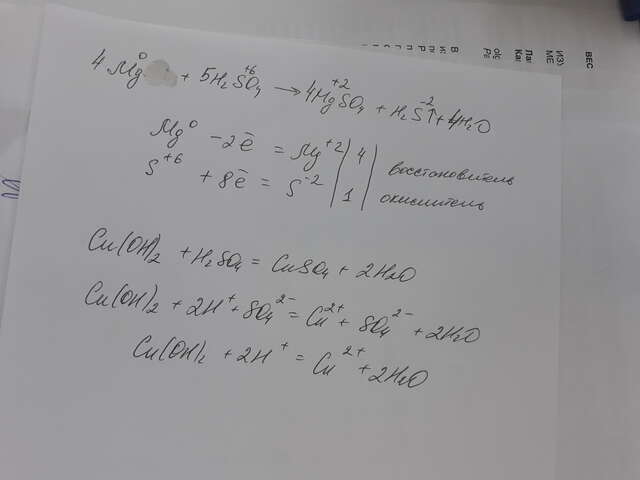 4Mg⁰ + 5H₂S⁺⁶O₄ → 4Mg⁺²SO₄ + H₂S⁻²↑ + 4H₂O
Mg⁰ - 2ē = Mg⁺² | 4 | восстановитель
S⁺⁶ + 8ē = S⁻² | 1 | окислитель
Cu(OH)₂ + H₂SO₄ = CuSO₄ + 2H₂O
Cu(OH)₂ + 2H⁺ + SO₄²⁻ = Cu²⁺ + SO₄²⁻ + 2H₂O
Cu(OH)₂ + 2H⁺ = Cu²⁺ + 2H₂O